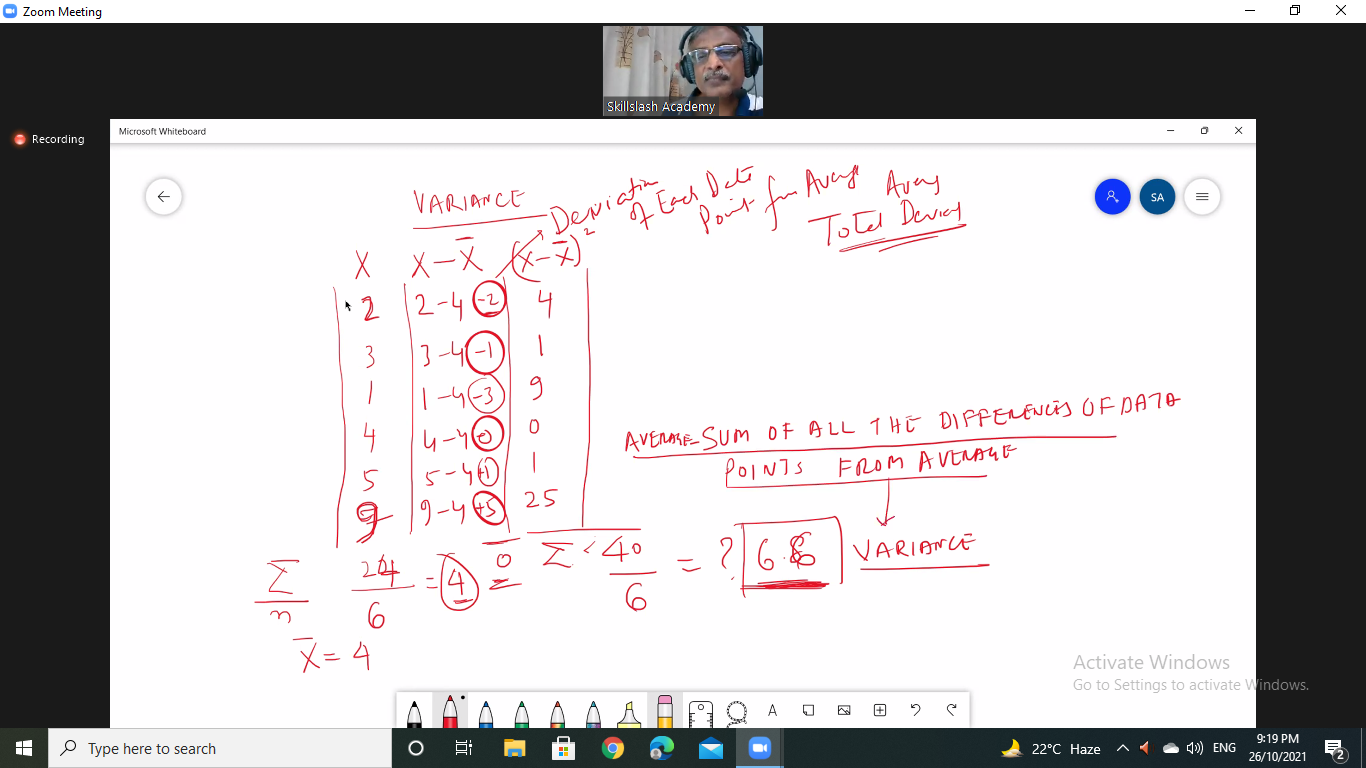 Zoom Meeting
Skillslash Academy
Recording
Microsoft Whiteboard
SA
VARIANCE
Deviation of Each Data
Point from Average
Total
X X - X̄ (X - X̄)²
2 2-4 -2 4
3 3-4 -1 1
1 1-4 -3 9
4 4-4 0 0
5 5-4 +1 1
9 9-4 +5 25
AVERAGE SUM OF ALL THE DIFFERENCES OF DATA
POINTS FROM AVERAGE
Σ/n 24/6 = 4 0 Σ 40/6 = ? 6.6 VARIANCE
X̄ = 4
Activate Windows
Go to Settings to activate Windows.
A
Type here to search
22°C Haze
ENG
9:19 PM
26/10/2021
2